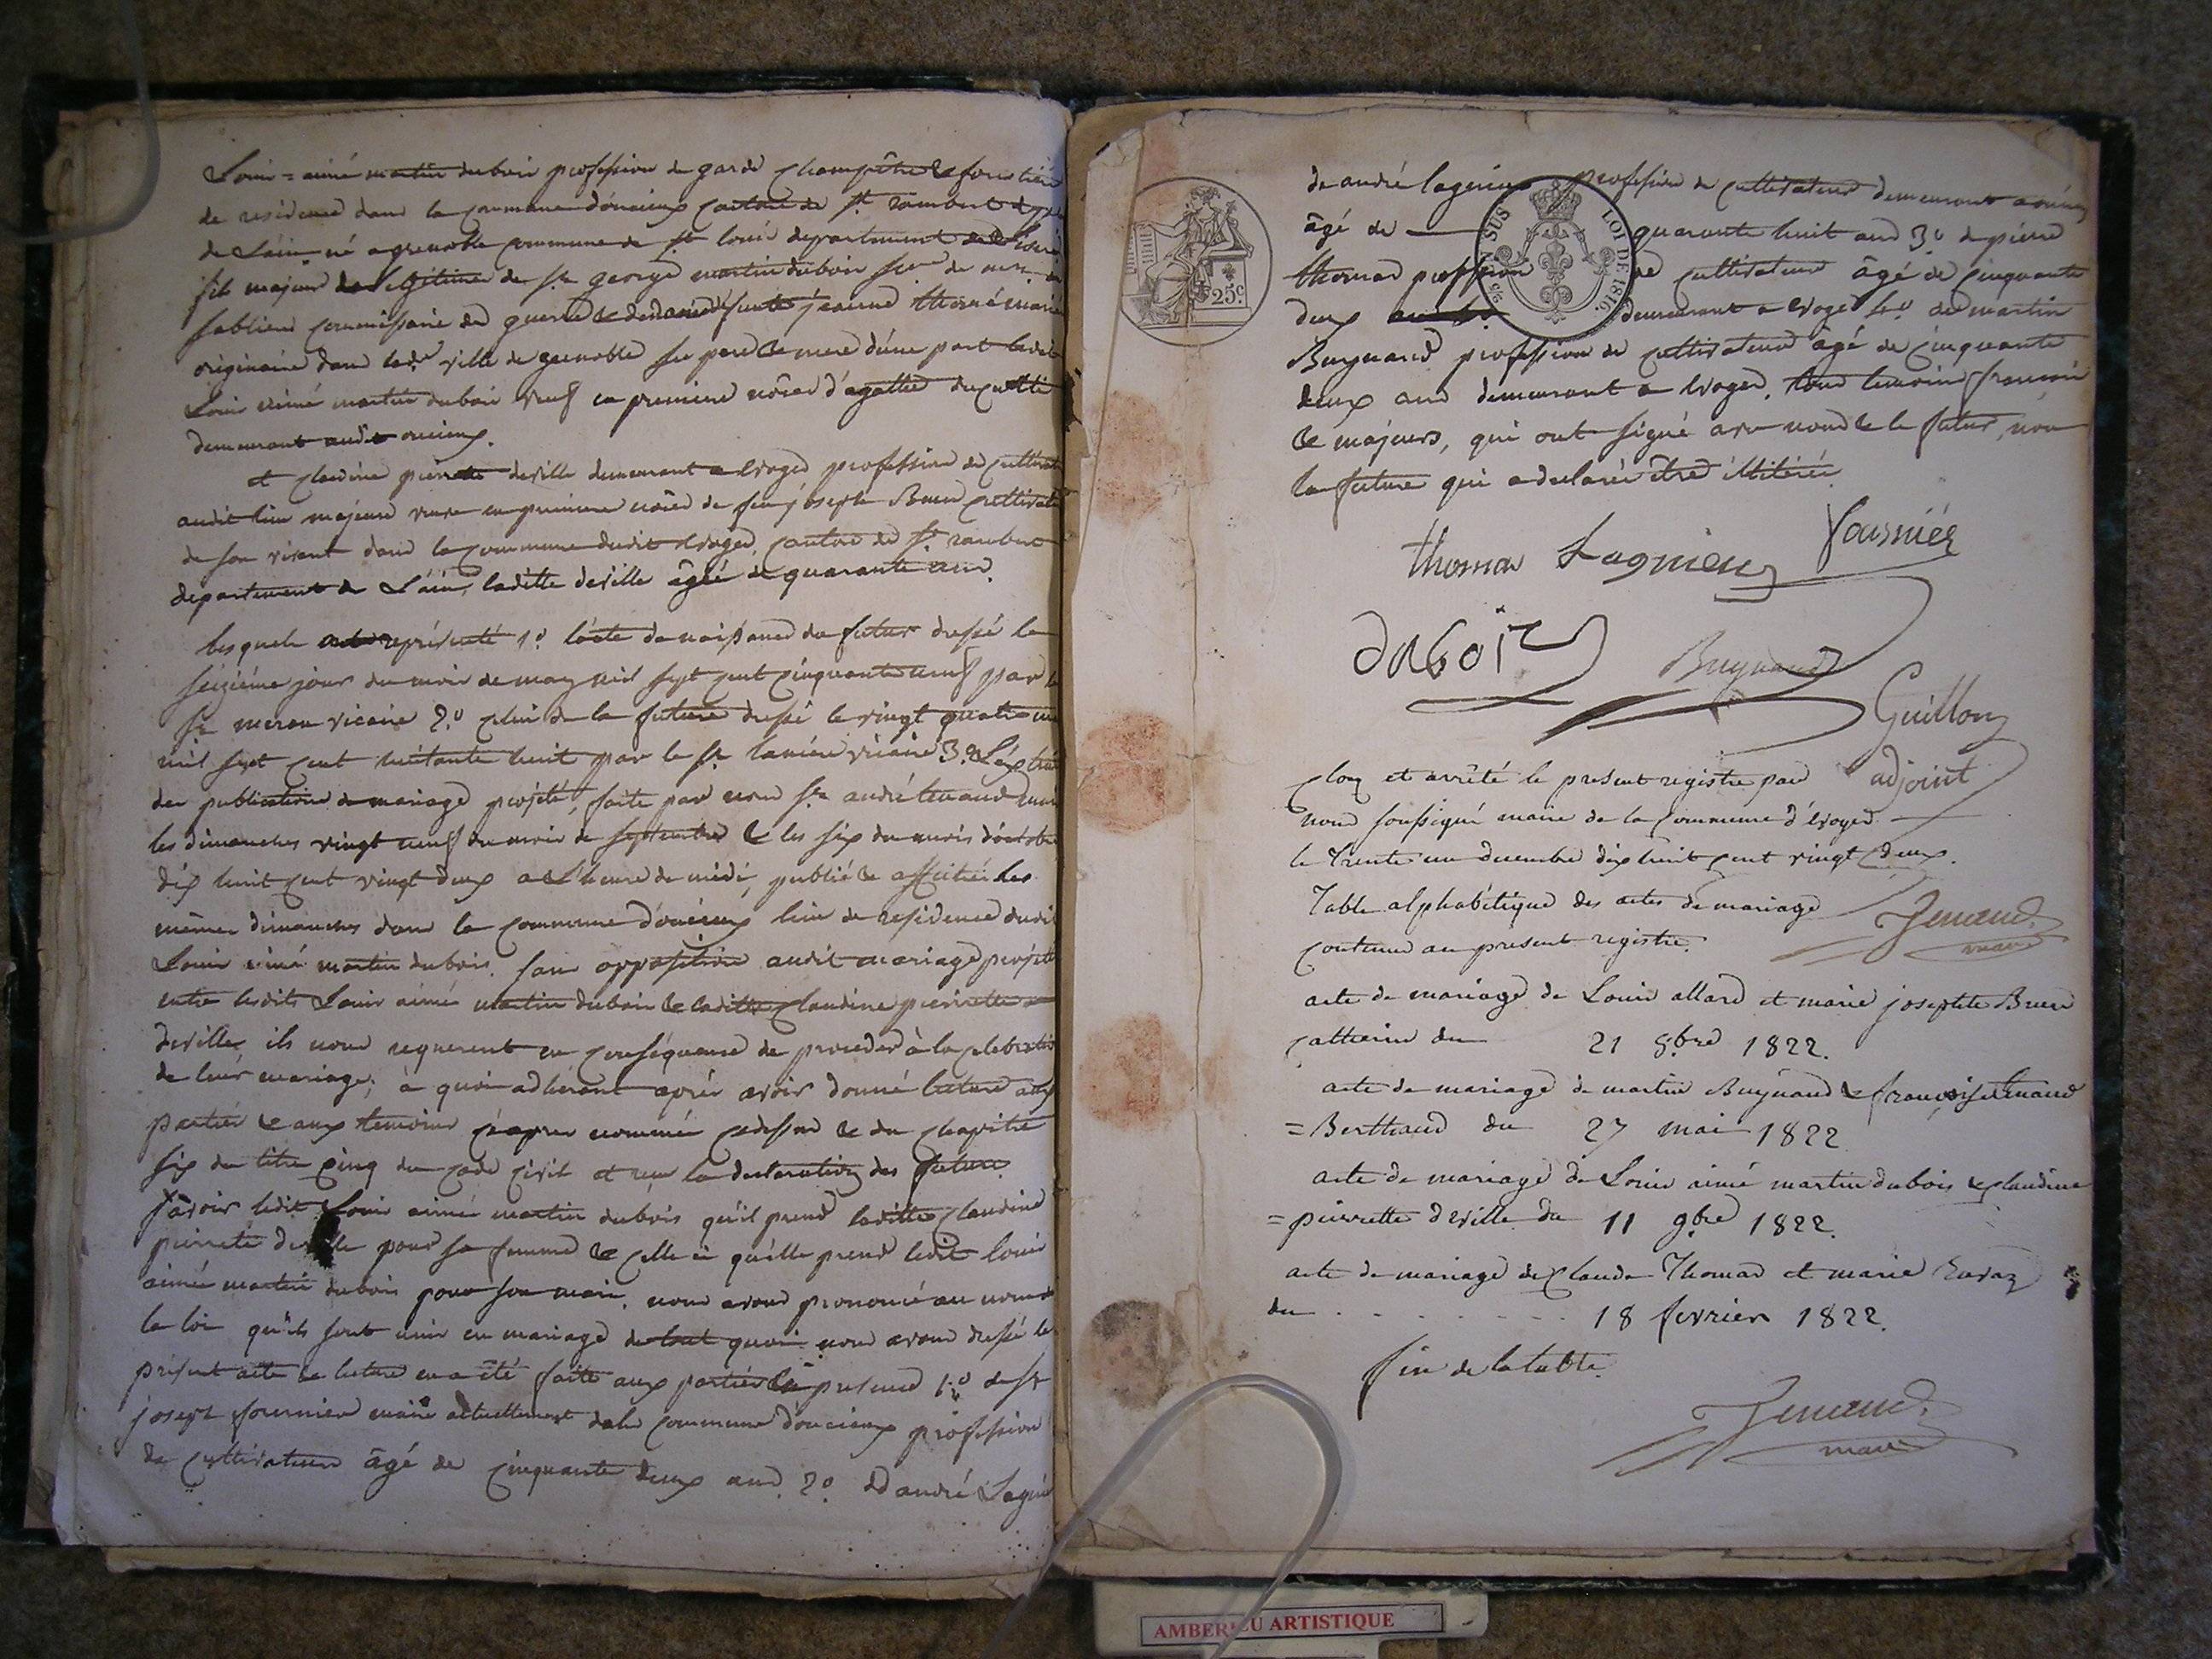 Louis = aimé martin dubois profession de garde champêtre & forestier
de residence dans la commune d'oncieux canton de St rambert
de L'ain né a grenoble commune de St louis departement de L'isere
fils majeur & légitime de Sr george martin dubois
commissaire des guerres & de jeanne thoméé marie
originaire dans ladte ville de grenoble ses pere & mere d'une part ledit
Louis aimé martin dubois veuf en premiere nôces d'agathe ducatti
demeurant audit oncieux.
et claudine pierrete deville demeurant a Evoges profession de cultivat
audit lieu majeure veuve en premiere nôces de feu joseph Brun cultivat
de son vivent dans la commune dudit Evoges, canton de St rambert
departement de L'ain, laditte deville âgéé de quarante ans.
lesquels represénté 1o l'acte de naissance du futur dressé le
seiziéme jour du mois de may mil sept cent cinquante neuf par le
Sr vicaire 2o celui de la future dressé le vingt quatre
mil sept cent huitante huit par le Sr vicaire 3o L'extrait
des publications de mariage projeté, faite par nous Sr andré tenand maire
les dimanches vingt neuf du mois de septembre & les six du mois d'octobre
dix huit cent vingt deux a L'heure de midi, publié & affiché les
mêmes dimanches dans la commune d'oncieux lieu de residence dudit
Louis aimé martin dubois. sans opposition audit mariage projeté
entre lesdits Louis aimé martin dubois & laditte claudine pierrette =
deville ils nous requerent en conséquence de proceder à la celebration
de leur mariage; à quoi adhérant aprés avoir donné lecture aux
partiés & aux temoins ci aprés nommés & du chapitre
six du titre cinq du code civil et reçu la declaration des futurs
savoir ledit Louis aimé martin dubois qu'il prend laditte claudine
pierrete deville pour sa femme & celle ci qu'elle prend ledit louis
aimé martin dubois pour son mari, nous avons prononcé au nom de
la loi qu'ils sont unis en mariage de tout quoi nous avons dressé le
présent acte & lecture en a été faite aux partiés en presence 1o de Sr
joseph fournier maire actuellement de la commune d'oncieux profession
de cultivateur âgé de cinquante deux ans. 2o D'andré Lagnie
de andré lagnieux profession de cultivateur demeurant
âgé de quarante huit ans 3o de pierre
thomas profession de cultivateur âgé de cinquante
deux demeurant a Evoges 4o de martin
Buynand profession de cultivateur âgé de cinquante
deux ans demeurant a Evoges, tous temoins francois
& majeurs, qui ont signé avec nous & le futur, non
la future qui a declaréé être illitéréé
SUS
LOI DE 1816.
25c.
thomas Lagnieux fournier
duboiz Buynand
Guillon
adjoint
clos et arrêté le present registre par
nous soussigné maire de la commune d'Evoges
le trente un decembre dix huit cent vingt deux.
Tenand
maire
Table alphabétique des actes de mariage
contenus au present registre.
acte de mariage de Louis allard et marie josephte Brun
Catherin du 21 8bre 1822.
acte de mariage de martin Buynand & françoise tenand
= Berthaud du 27 mai 1822
acte de mariage de Louis aimé martin dubois & claudine
= pierrette deville du 11 9bre 1822.
acte de mariage de claude Thomas et marie
du . . . . . . . . . 18 fevrier 1822.
fin de la table.
Tenand
maire
AMBERIEU ARTISTIQUE